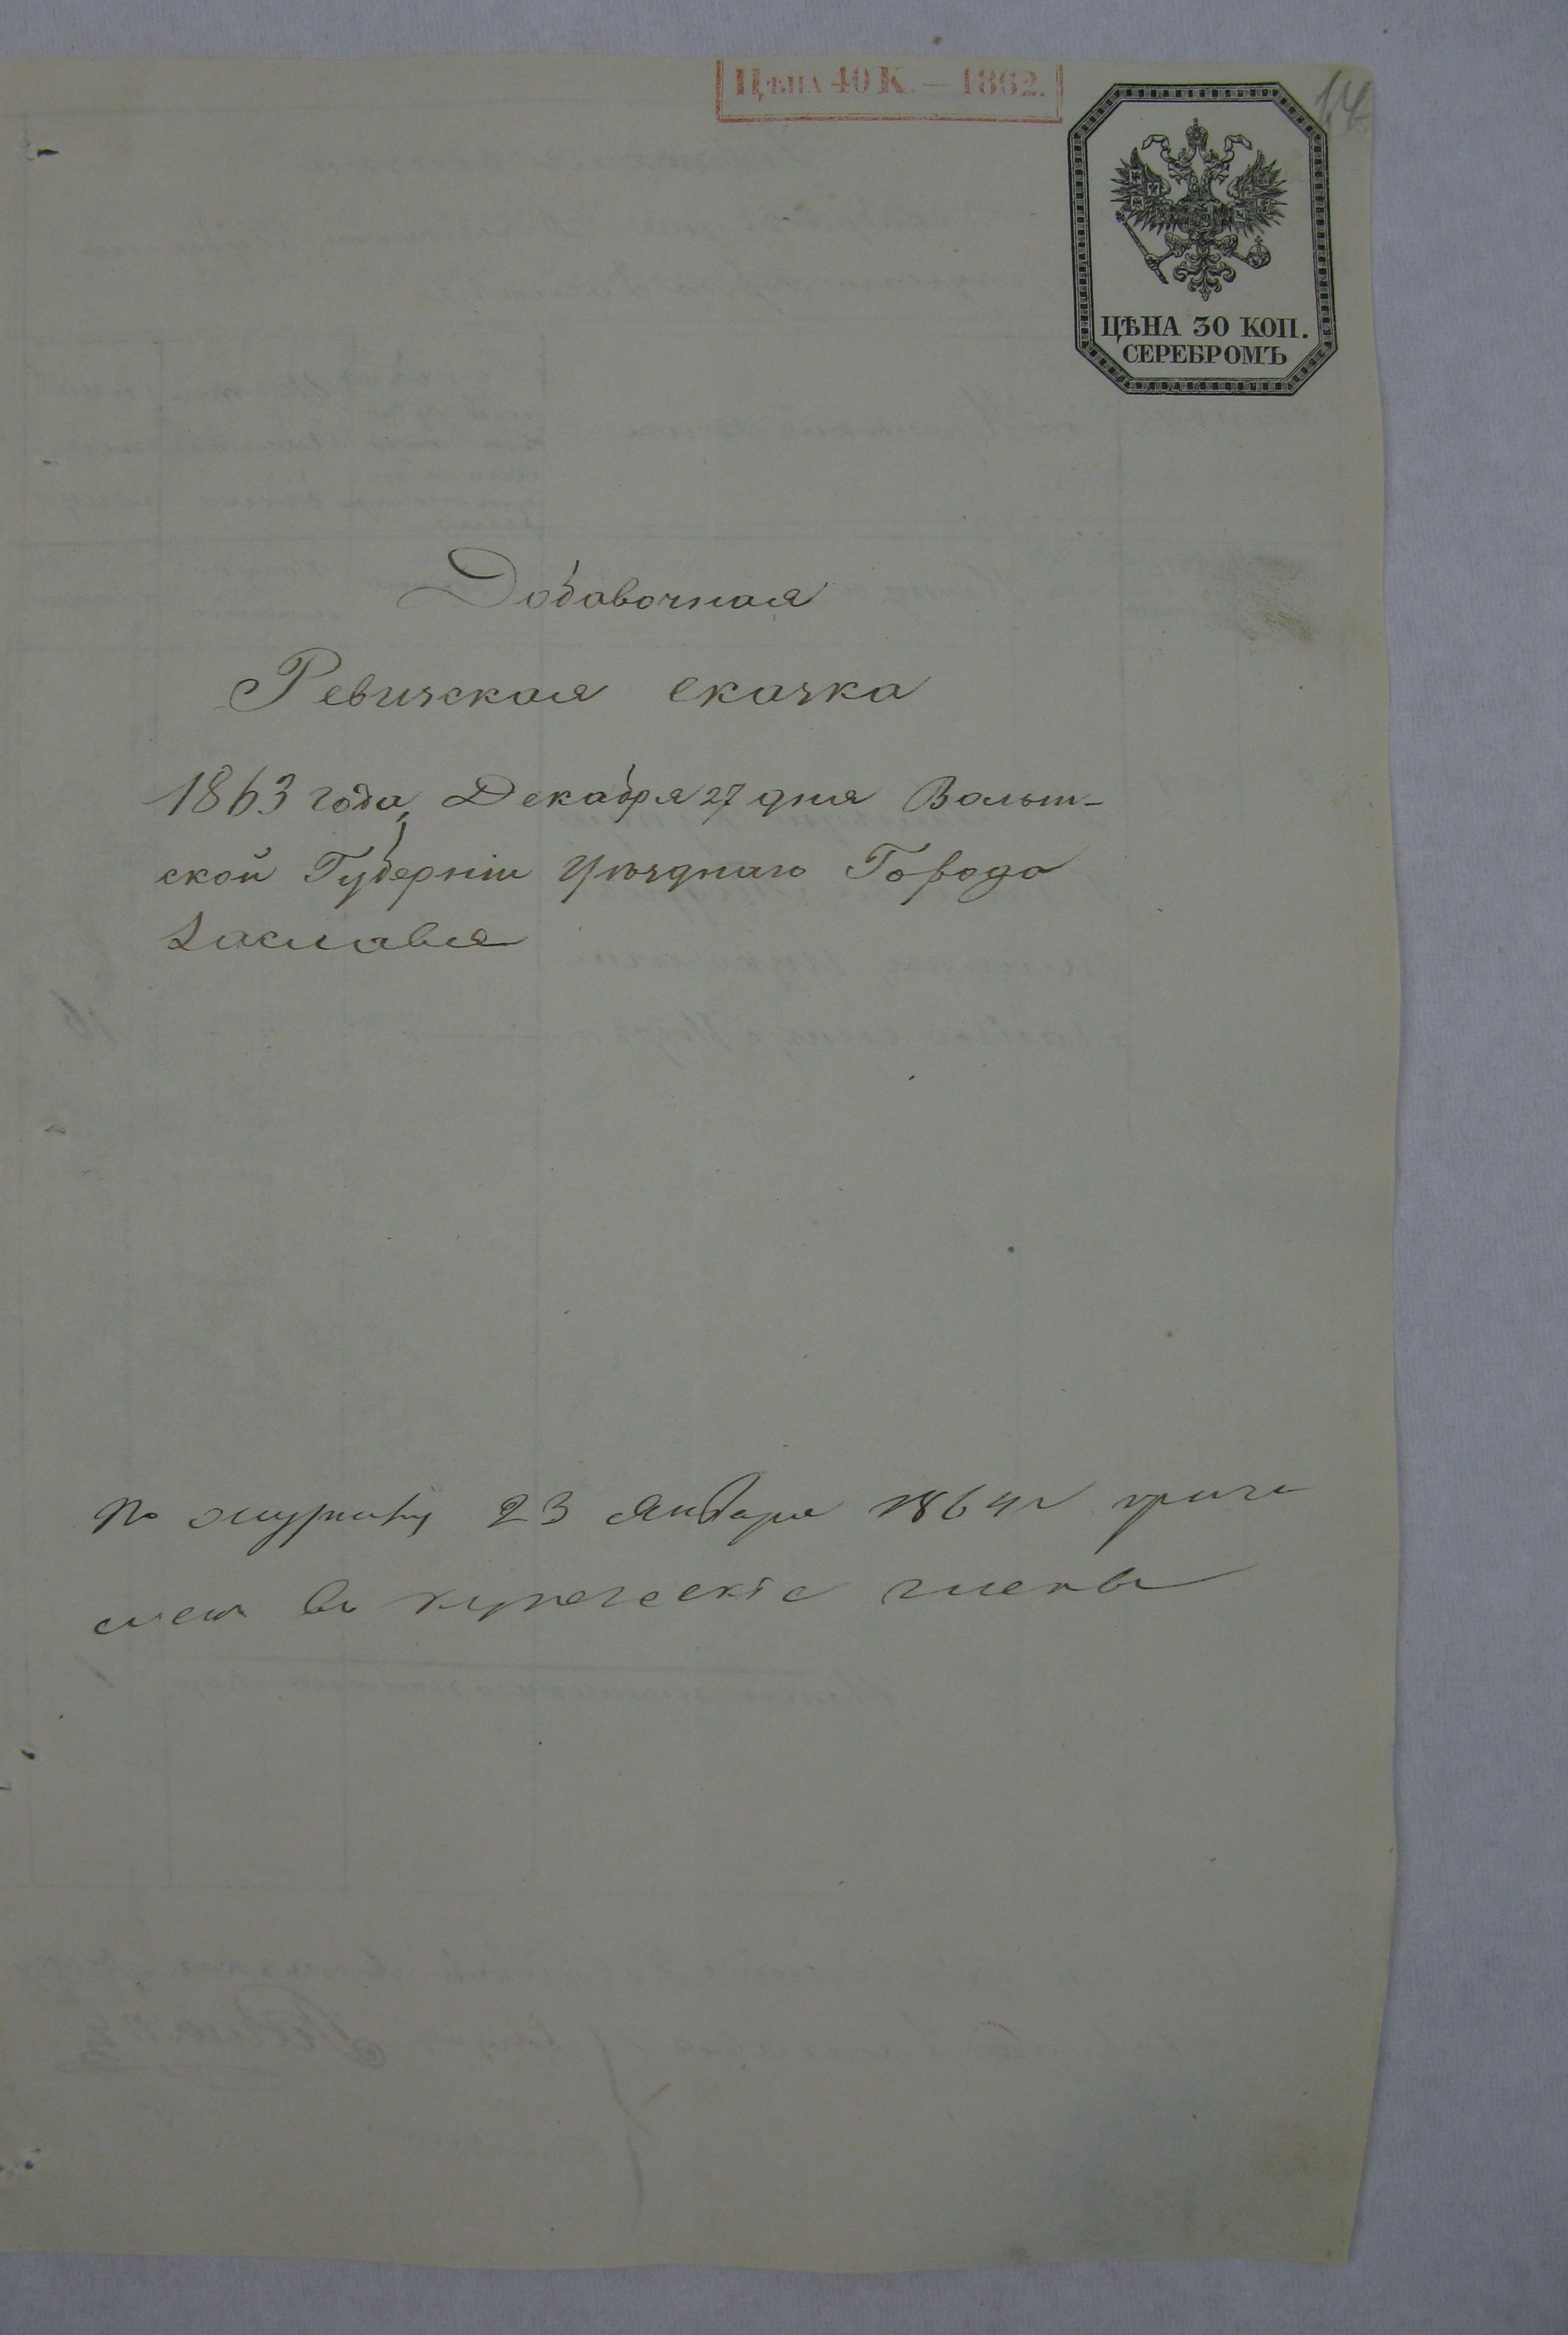 Цѣна 40 К. — 1862.
14
ЦѢНА 30 КОП.
СЕРЕБРОМЪ
Добавочная
Ревизская сказка
1863 года, Декабря 27 дня Волын-
ской Губерніи Уѣзднаго Города
Заславля
По журналу 23 Января 1864 г причи
слен въ купеческіе члены